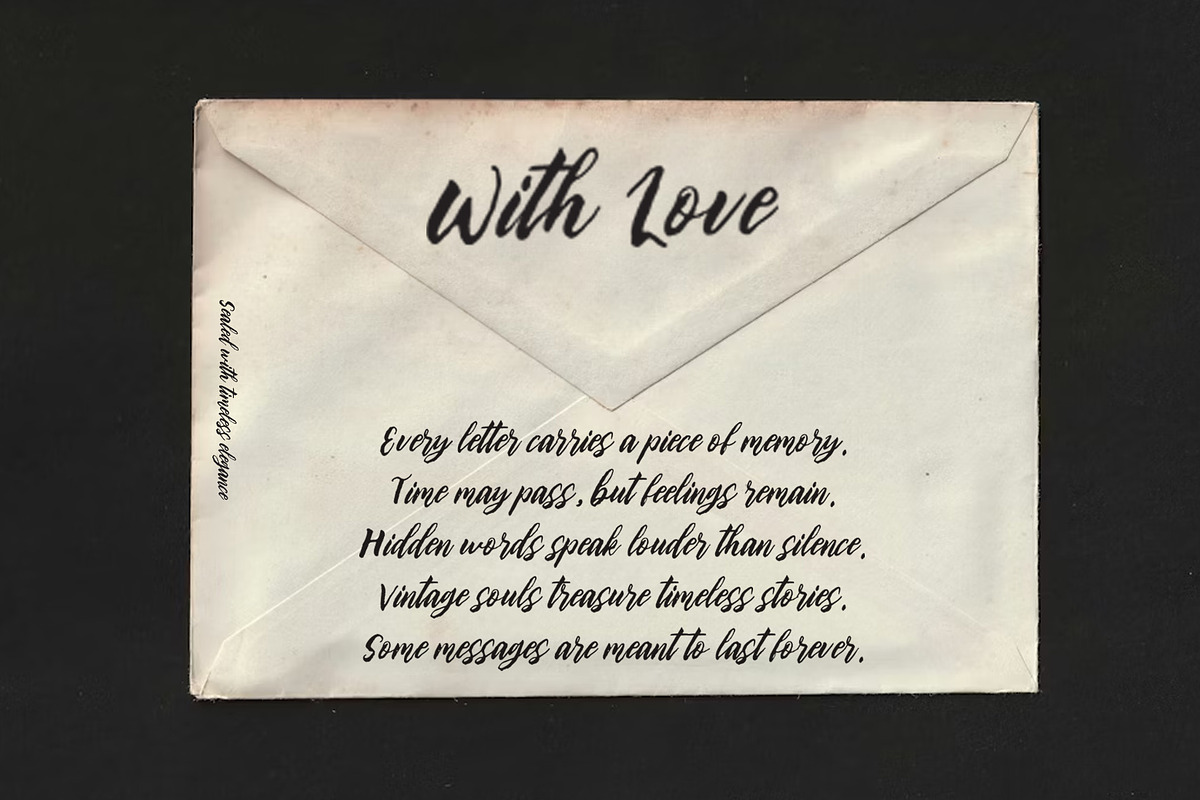 With Love
Sealed with timeless elegance
Every letter carries a piece of memory.
Time may pass, but feelings remain.
Hidden words speak louder than silence.
Vintage souls treasure timeless stories.
Some messages are meant to last forever.